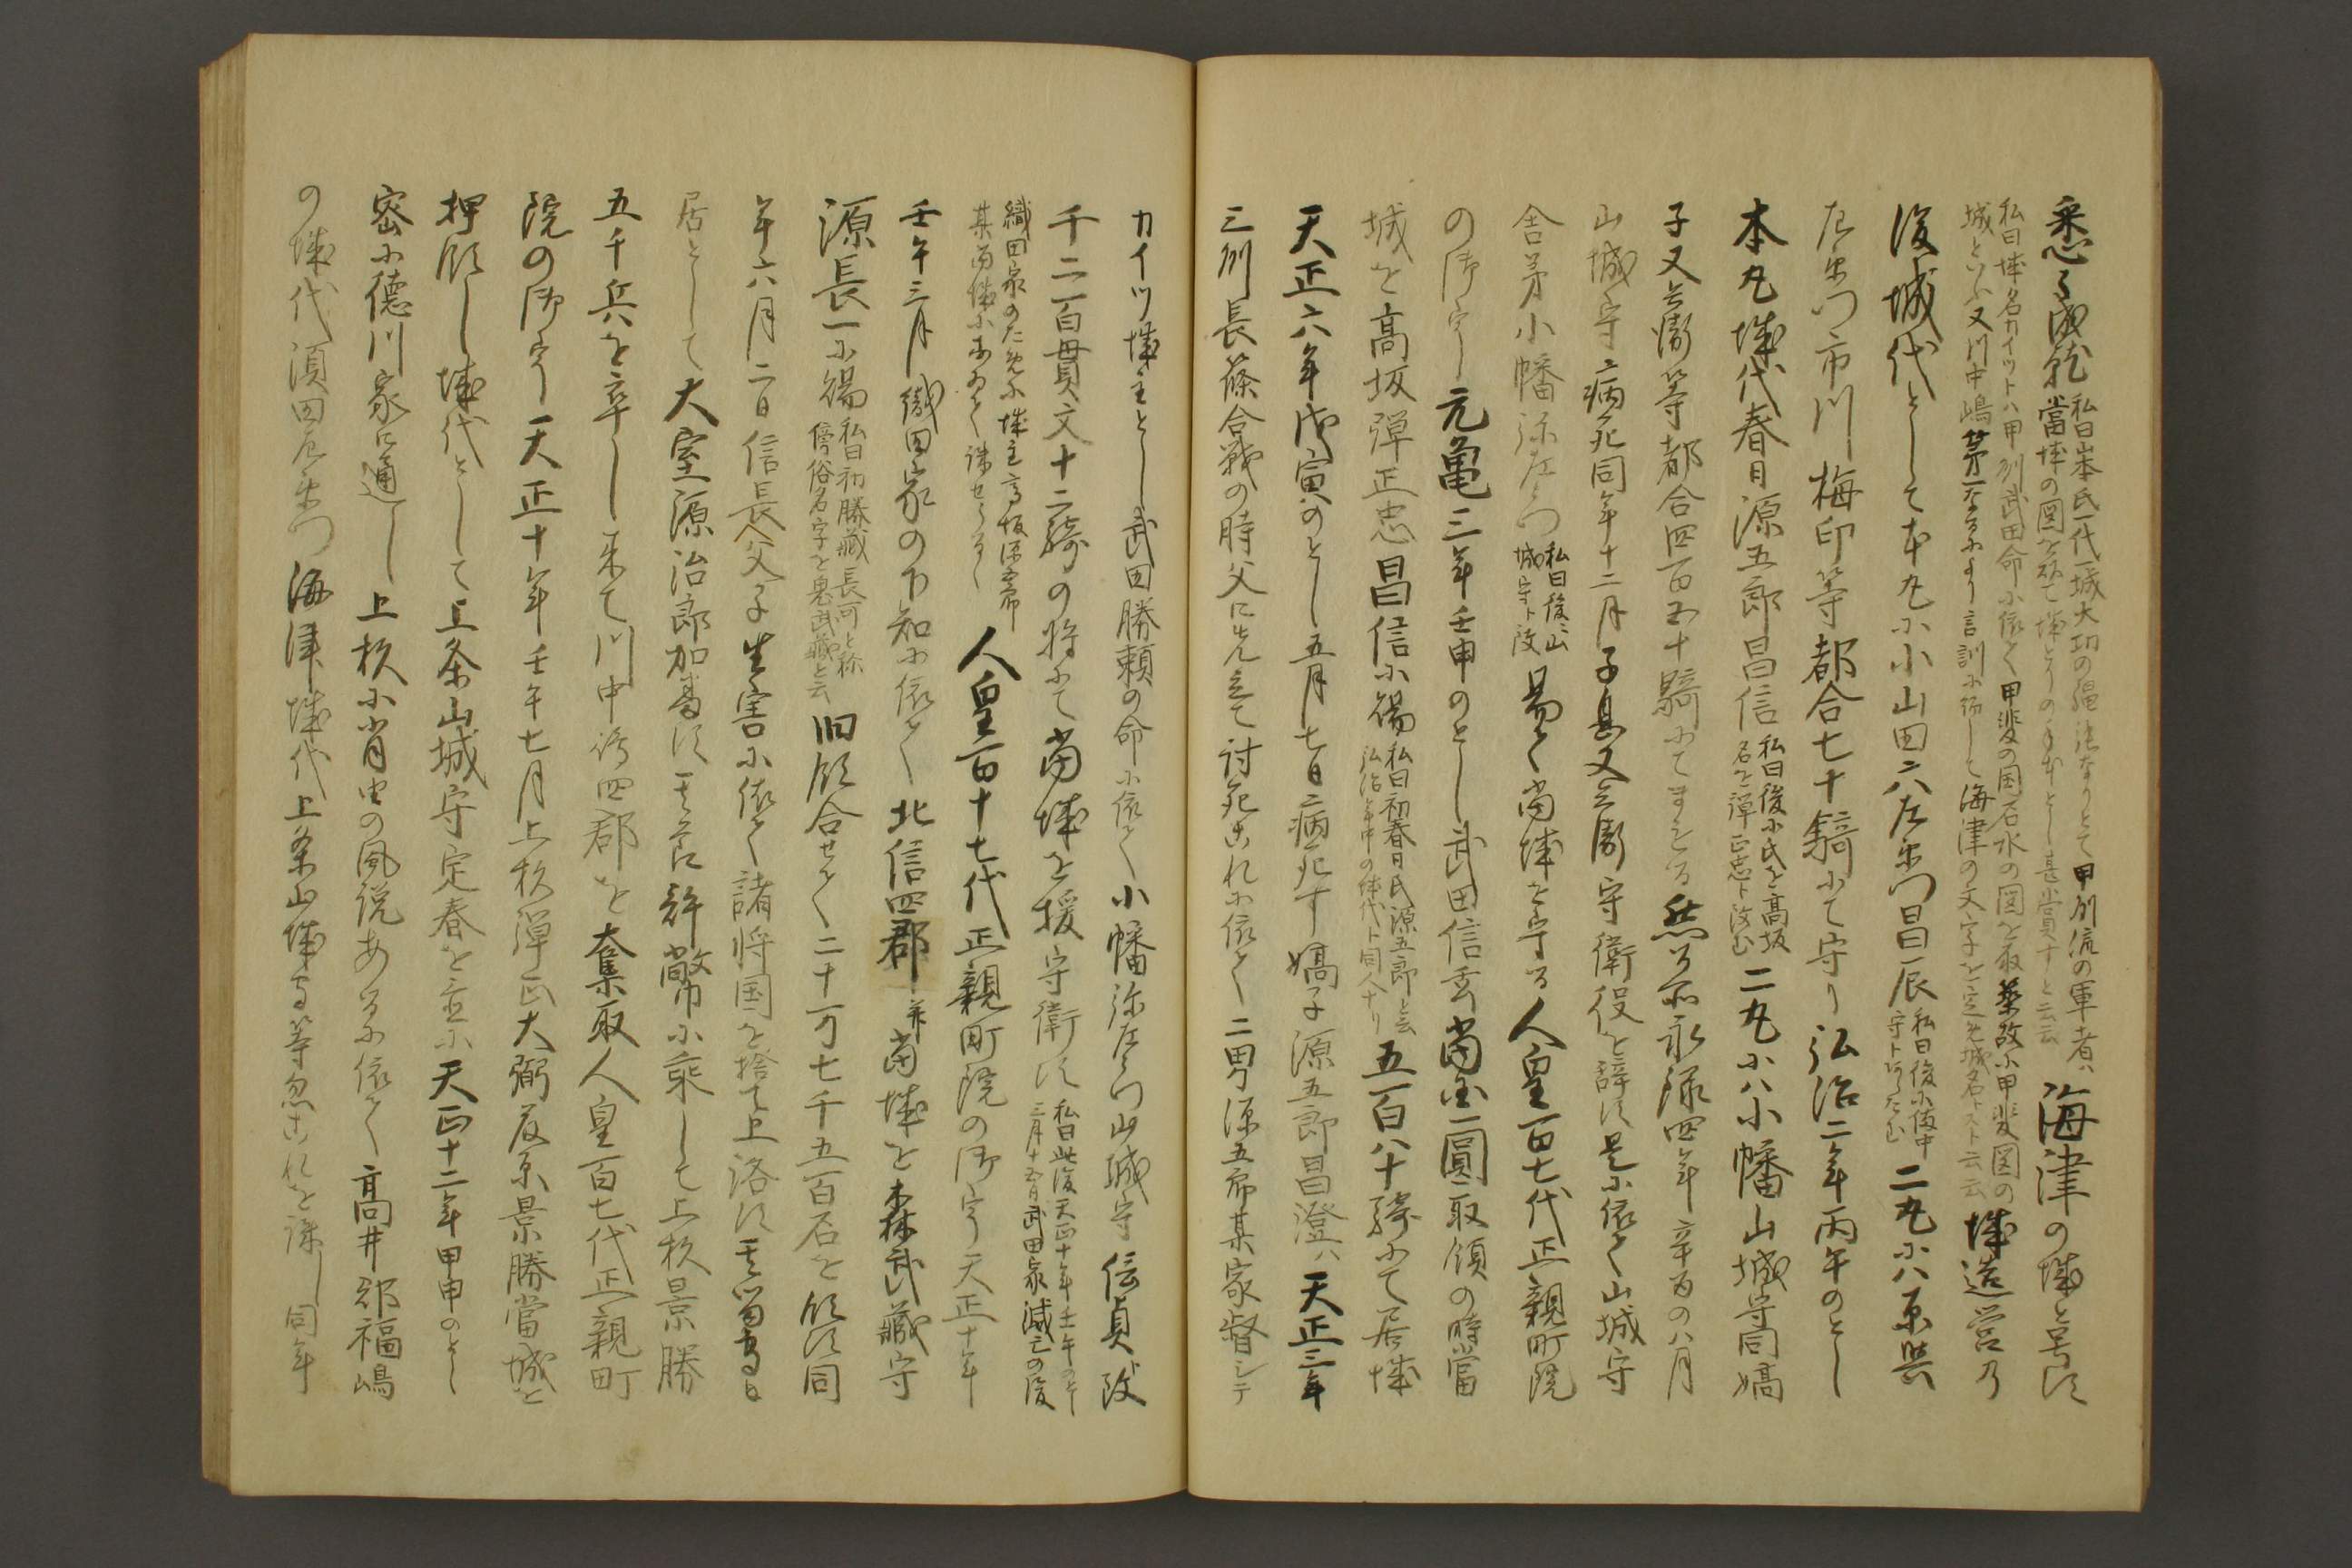 悉く成就私曰山本氏一代一城大功の縄張なりとて甲州流の軍者ハ當城の図を以て城とりの手本とし甚賞すと云云海津の城と号す
私曰城名カイツトハ甲州武田命に依て甲斐の国石水の図を取築故に甲斐図の城といふ又川中嶋第一なるにより言訓に好して海津の文字を定め城名トスト云云城造営乃
後城代として本丸に小山田六左衛門昌辰私曰後に備中守ト改たむ二丸にハ原与
左衛門市川梅印等都合七十騎にて守り弘治二年丙午のとし
本丸城代春日源五郎昌信私曰後に氏を高坂名を弾正忠ト改む二丸にハ小幡山城守同嫡
子又兵衛等都合四百五十騎にてまもる然る所永禄四年辛酉の八月
山城守病死同年十二月子息又兵衛守衛役を辞す是に依て山城守
舎弟小幡弥左衛門私曰後ニ山城守ト改易て当城を守る人皇一百七代正親町院
の御宇元亀三年壬申のとし武田信玄當国一圓取領の時當
城を高坂弾正忠昌信に賜私曰初春日氏源五郎と云弘治年中の城代ト同人ナリ五百八十騎にて居城
天正六年戊寅のとし五月七日病死す嫡子源五郎昌澄ハ天正三年
三州長篠合戦の時父に先立て討死これに依て二男源五郎某家督シテ
カイツ城主とし武田勝頼の命に依て小幡弥左衛門山城守信貞ト改
千二百貫文十二騎の将にて当城を援守衛す私曰此後天正十年壬午のとし三月十五日武田家滅亡の後
織田家のため城主高坂源五郎某当城にあゐて誅せらる人皇百十七代正親町院の御宇天正十年
壬午三月織田家の下知に依て北信四郡并当城を森武蔵守
源長一に賜私曰初勝蔵長可と称傍俗名字を鬼武蔵と云旧領合せて二十万七千五百石を領す同
年六月二日信長父子生害に依て諸将国を捨て上洛す其留守
居として大室源治郎加番す其節幣に乗して上杉景勝
五千兵を卒し来て川中嶋四郡を奪取人皇百七代正親町
院の御宇天正十年壬午七月上杉弾正大弼藤原景勝當城を
押領し城代として上条山城守定春を立に天正十二年甲申のとし
密に徳川家に通し上杉に背由の風説あるに依て高井郡福嶋
の城代須田左衛門海津城代上条山城守等忽これを誅し同年